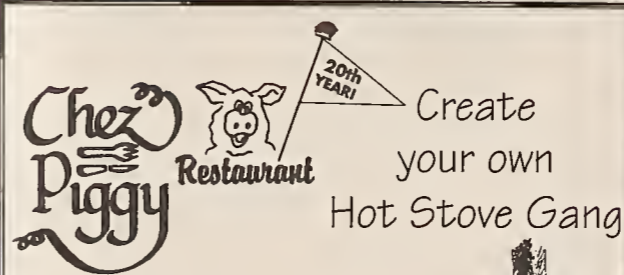 Chez
Piggy
Restaurant
20th
YEAR!
Create
your own
Hot Stove Gang